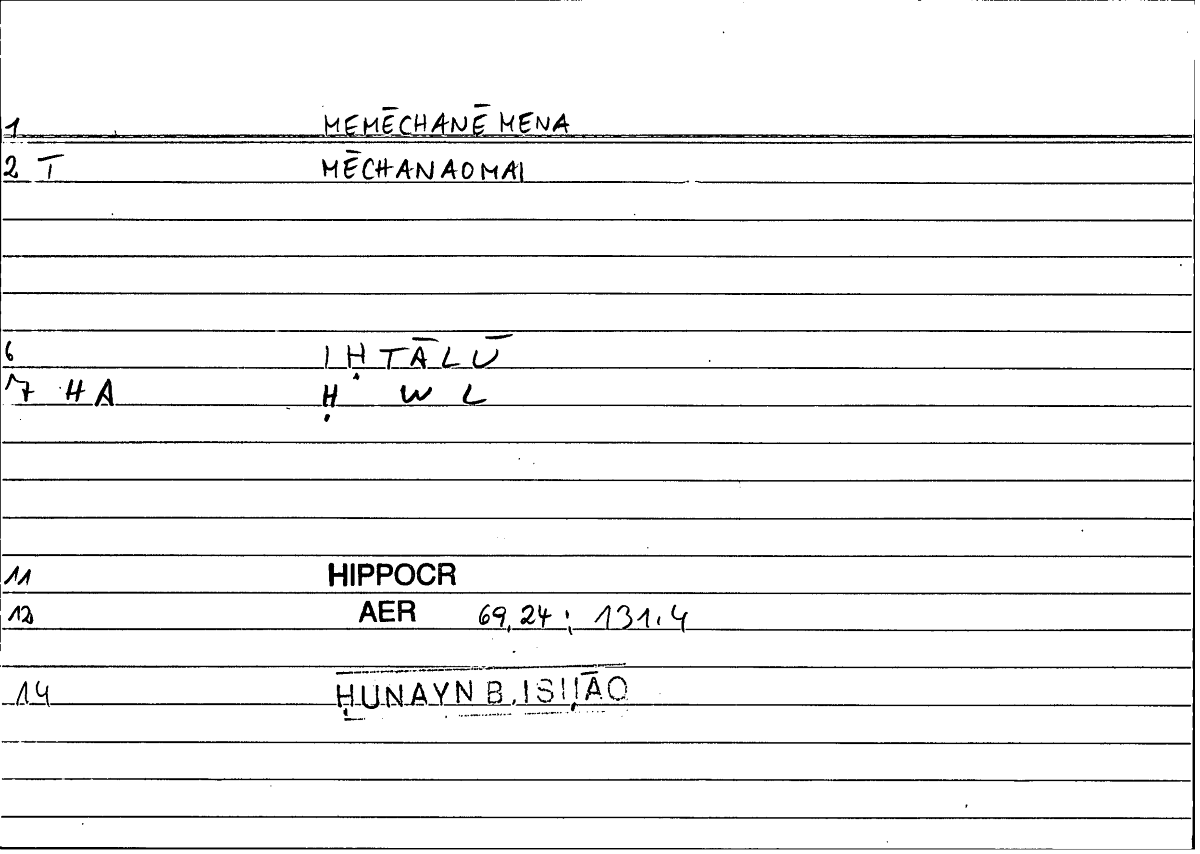 1 MEMĒCHANĒMENA
2 T MĒCHANAOMAI
6 IḤTĀLŪ
7 HA Ḥ W L
11 HIPPOCR
12 AER 69,24; 131.4
14 ḤUNAYN B. ISḤĀQ